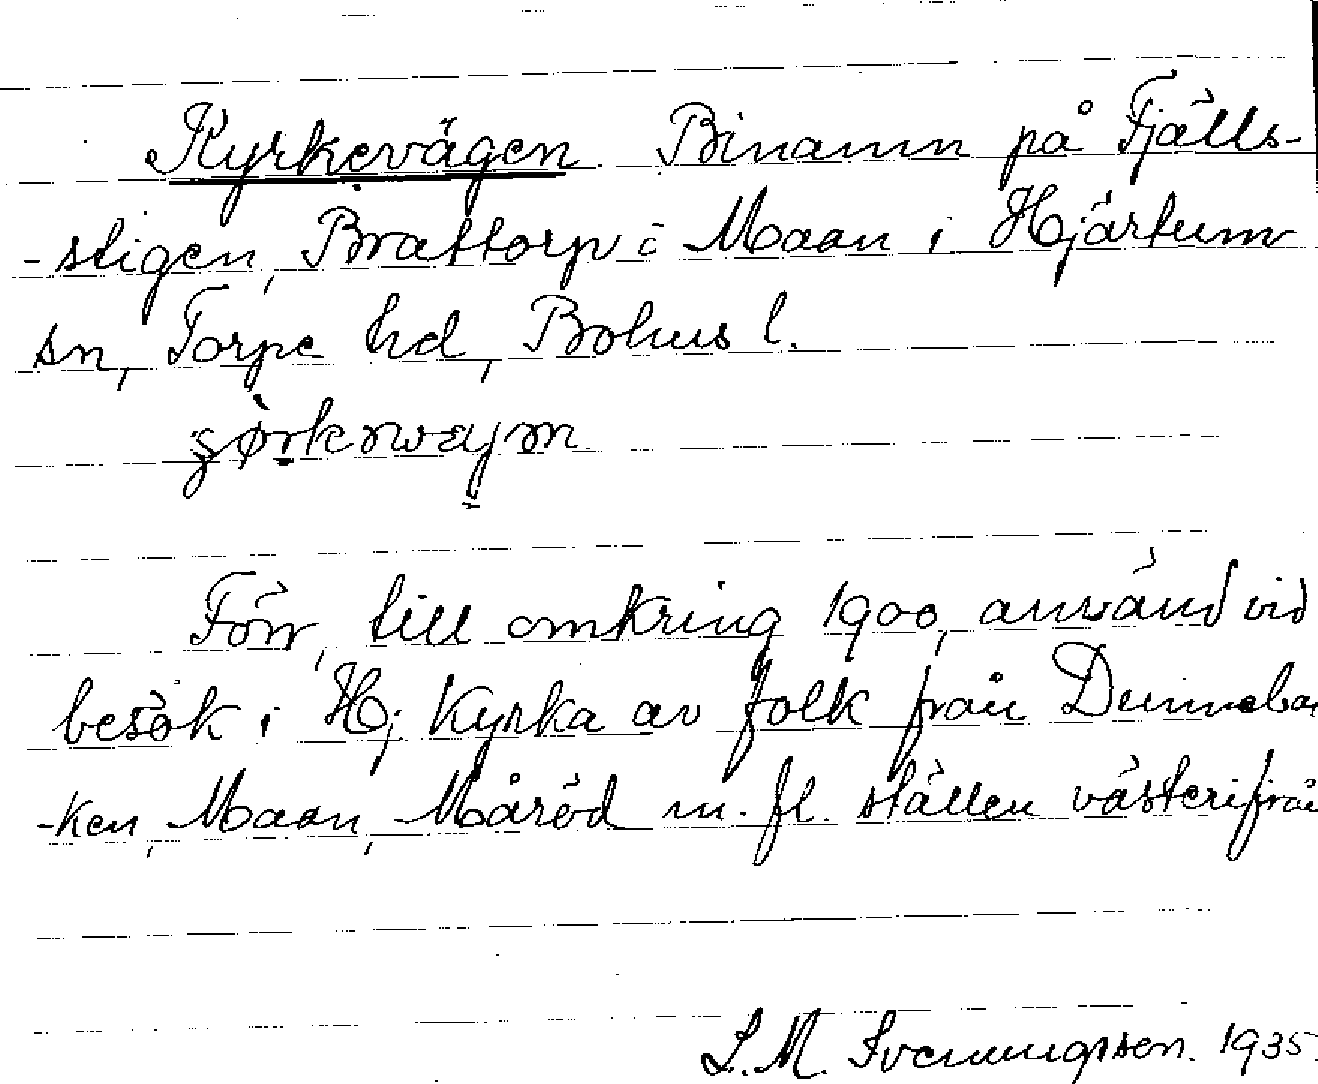 Kyrkevägen. Binamn på Fjälls-
-stigen, Brattorp i Maan i Hjärtum
sn, Torpe hd, Bohus l.
Förr, till omkring 1900, använd vid
besök i Hj kyrka av folk från
-ken, Maan, Måröd m. fl. ställen västerifrån
S. M. Svenungsson. 1935.